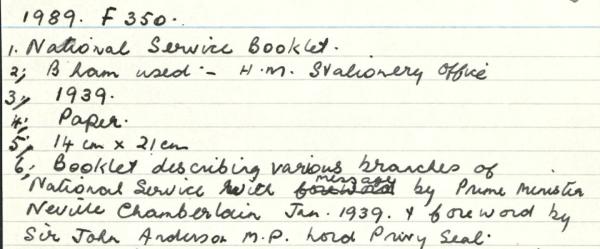 1989. F 350.
1. National Service Booklet.
2; B'ham used :- H.M. Stationery Office
3; 1939.
4; Paper.
5; 14 cm x 21 cm
6; Booklet describing various branches of
National Service with message by Prime Minister
Neville Chamberlain Jan. 1939. & foreword by
Sir John Anderson M.P. Lord Privy Seal.